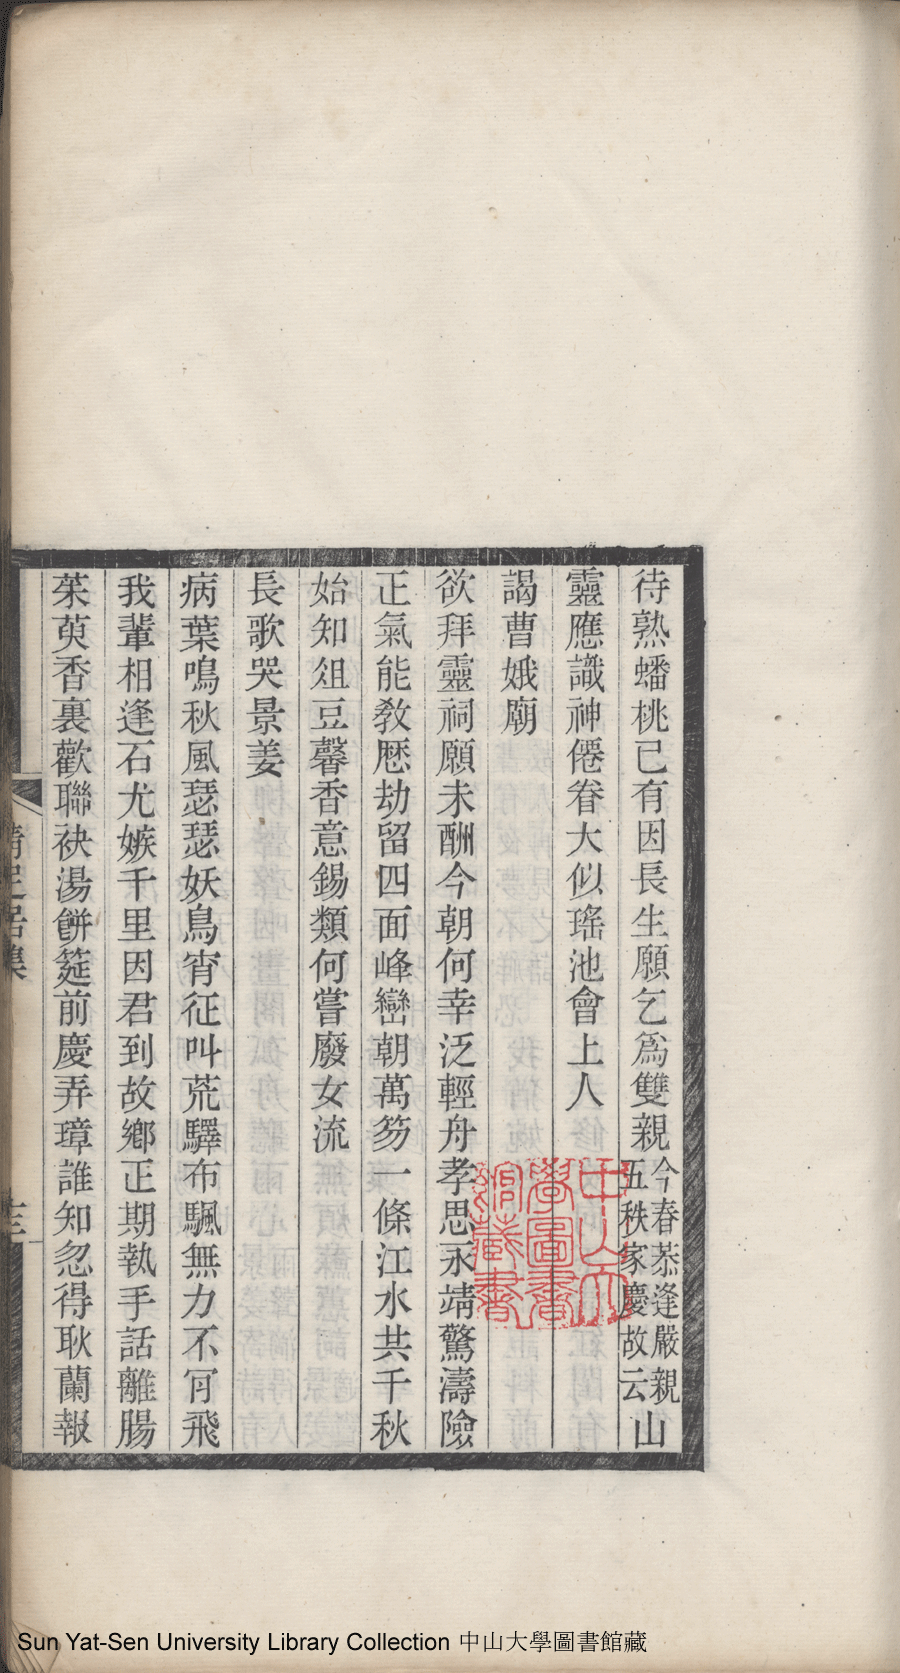 待熟蟠桃已有因長生願乞爲雙親今春恭逢嚴親五秩家慶故云山
靈應識神僊眷大似瑤池會上人
謁曹娥廟
欲拜靈祠願未酬今朝何幸泛輕舟孝思永靖驚濤險
正氣能教歷劫留四面峰巒朝萬笏一條江水共千秋
始知俎豆馨香意錫類何嘗廢女流
長歌哭景姜
病葉鳴秋風瑟瑟妖鳥宵征叫荒驛布颿無力不肎飛
我輩相逢石尤嫉千里因君到故鄉正期執手話離腸
茱萸香裏歡聯袂湯餅筵前慶弄璋誰知忽得耿蘭報
清足居集
十三
中山大學圖書館藏書
Sun Yat-Sen University Library Collection 中山大學圖書館藏